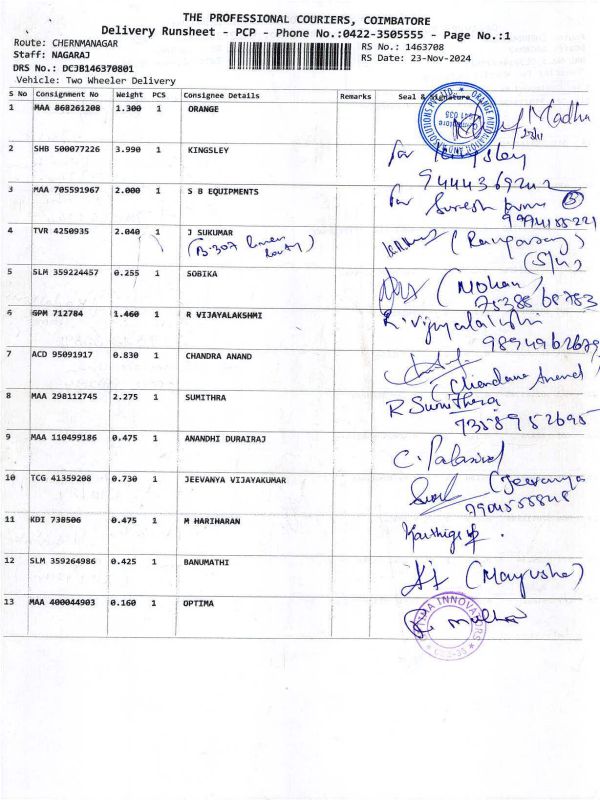 THE PROFESSIONAL COURIERS, COIMBATORE
Delivery Runsheet - PCP - Phone No.:0422-3505555 - Page No.:1
Route: CHERNMANAGAR
RS No.: 1463708
Staff: NAGARAJ
RS Date: 23-Nov-2024
DRS No.: DCJB146370801
Vehicle: Two Wheeler Delivery
S No Consignment No Weight PCS Consignee Details Remarks Seal & Signature
1 MAA 868261208 1.300 1 ORANGE
Madha
2 SHB 500077226 3.990 1 KINGSLEY
for Kingsley
9444369242
3 MAA 705591967 2.000 1 S B EQUIPMENTS
for Suresh
4 TVR 4250935 2.040 1 J SUKUMAR
(B-307
5 SLM 359224457 0.255 1 SOBIKA
(Mohan)
75388 68783
6 GPM 712784 1.460 1 R VIJAYALAKSHMI
R. Vijayalakshmi
9894962679
7 ACD 95091917 0.830 1 CHANDRA ANAND
(Chandana Anand
8 MAA 298112745 2.275 1 SUMITHRA
R Sumithra
73589 52695
9 MAA 110499186 0.475 1 ANANDHI DURAIRAJ
10 TCG 41359208 0.730 1 JEEVANYA VIJAYAKUMAR
(Jeevanya
11 KDI 738506 0.475 1 M HARIHARAN
12 SLM 359264986 0.425 1 BANUMATHI
(Mayusha)
13 MAA 400044903 0.160 1 OPTIMA